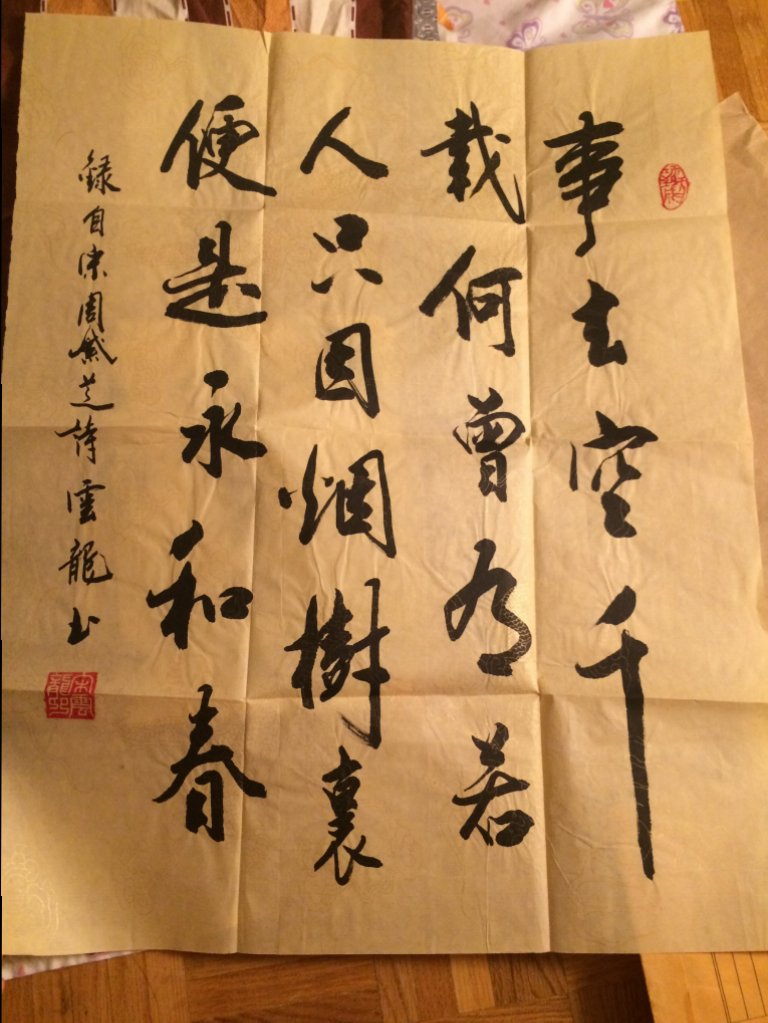 事去空千
載何曾有若
人只因烟樹裏
便是永和春
録自宋周紫芝詩雲龍书
宋雲龍印